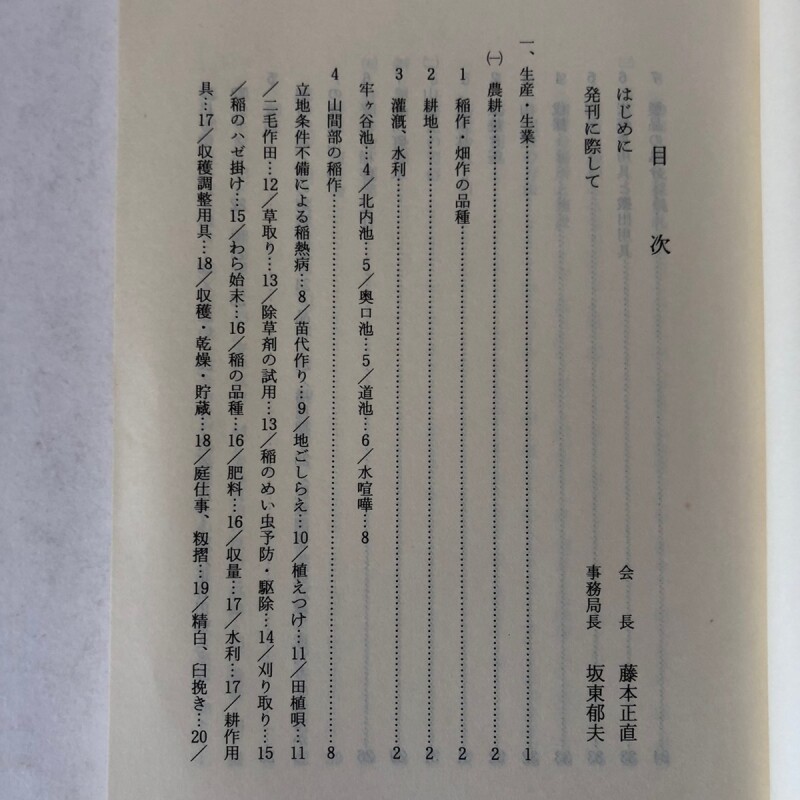 目次
はじめに 会長 藤本正直
発刊に際して 事務局長 坂東郁夫
一、生産・生業……………1
㈠ 農耕……………2
1 稲作・畑作の品種……………2
2 耕地……………2
3 灌漑、水利……………2
牢ヶ谷池…4／北内池…5／奥口池…5／道池…6／水喧嘩…8
4 山間部の稲作……………8
立地条件不備による稲熱病…8／苗代作り…9／地ごしらえ…10／植えつけ…11／田植唄…11
／二毛作田…12／草取り…13／除草剤の試用…13／稲のめい虫予防・駆除…14／刈り取り…15
／稲のハゼ掛け…15／わら始末…16／稲の品種…16／肥料…16／収量…17／水利…17／耕作用
具…17／収穫調整用具…18／収穫・乾燥・貯蔵…18／庭仕事、籾摺…19／精白、臼挽き…20／